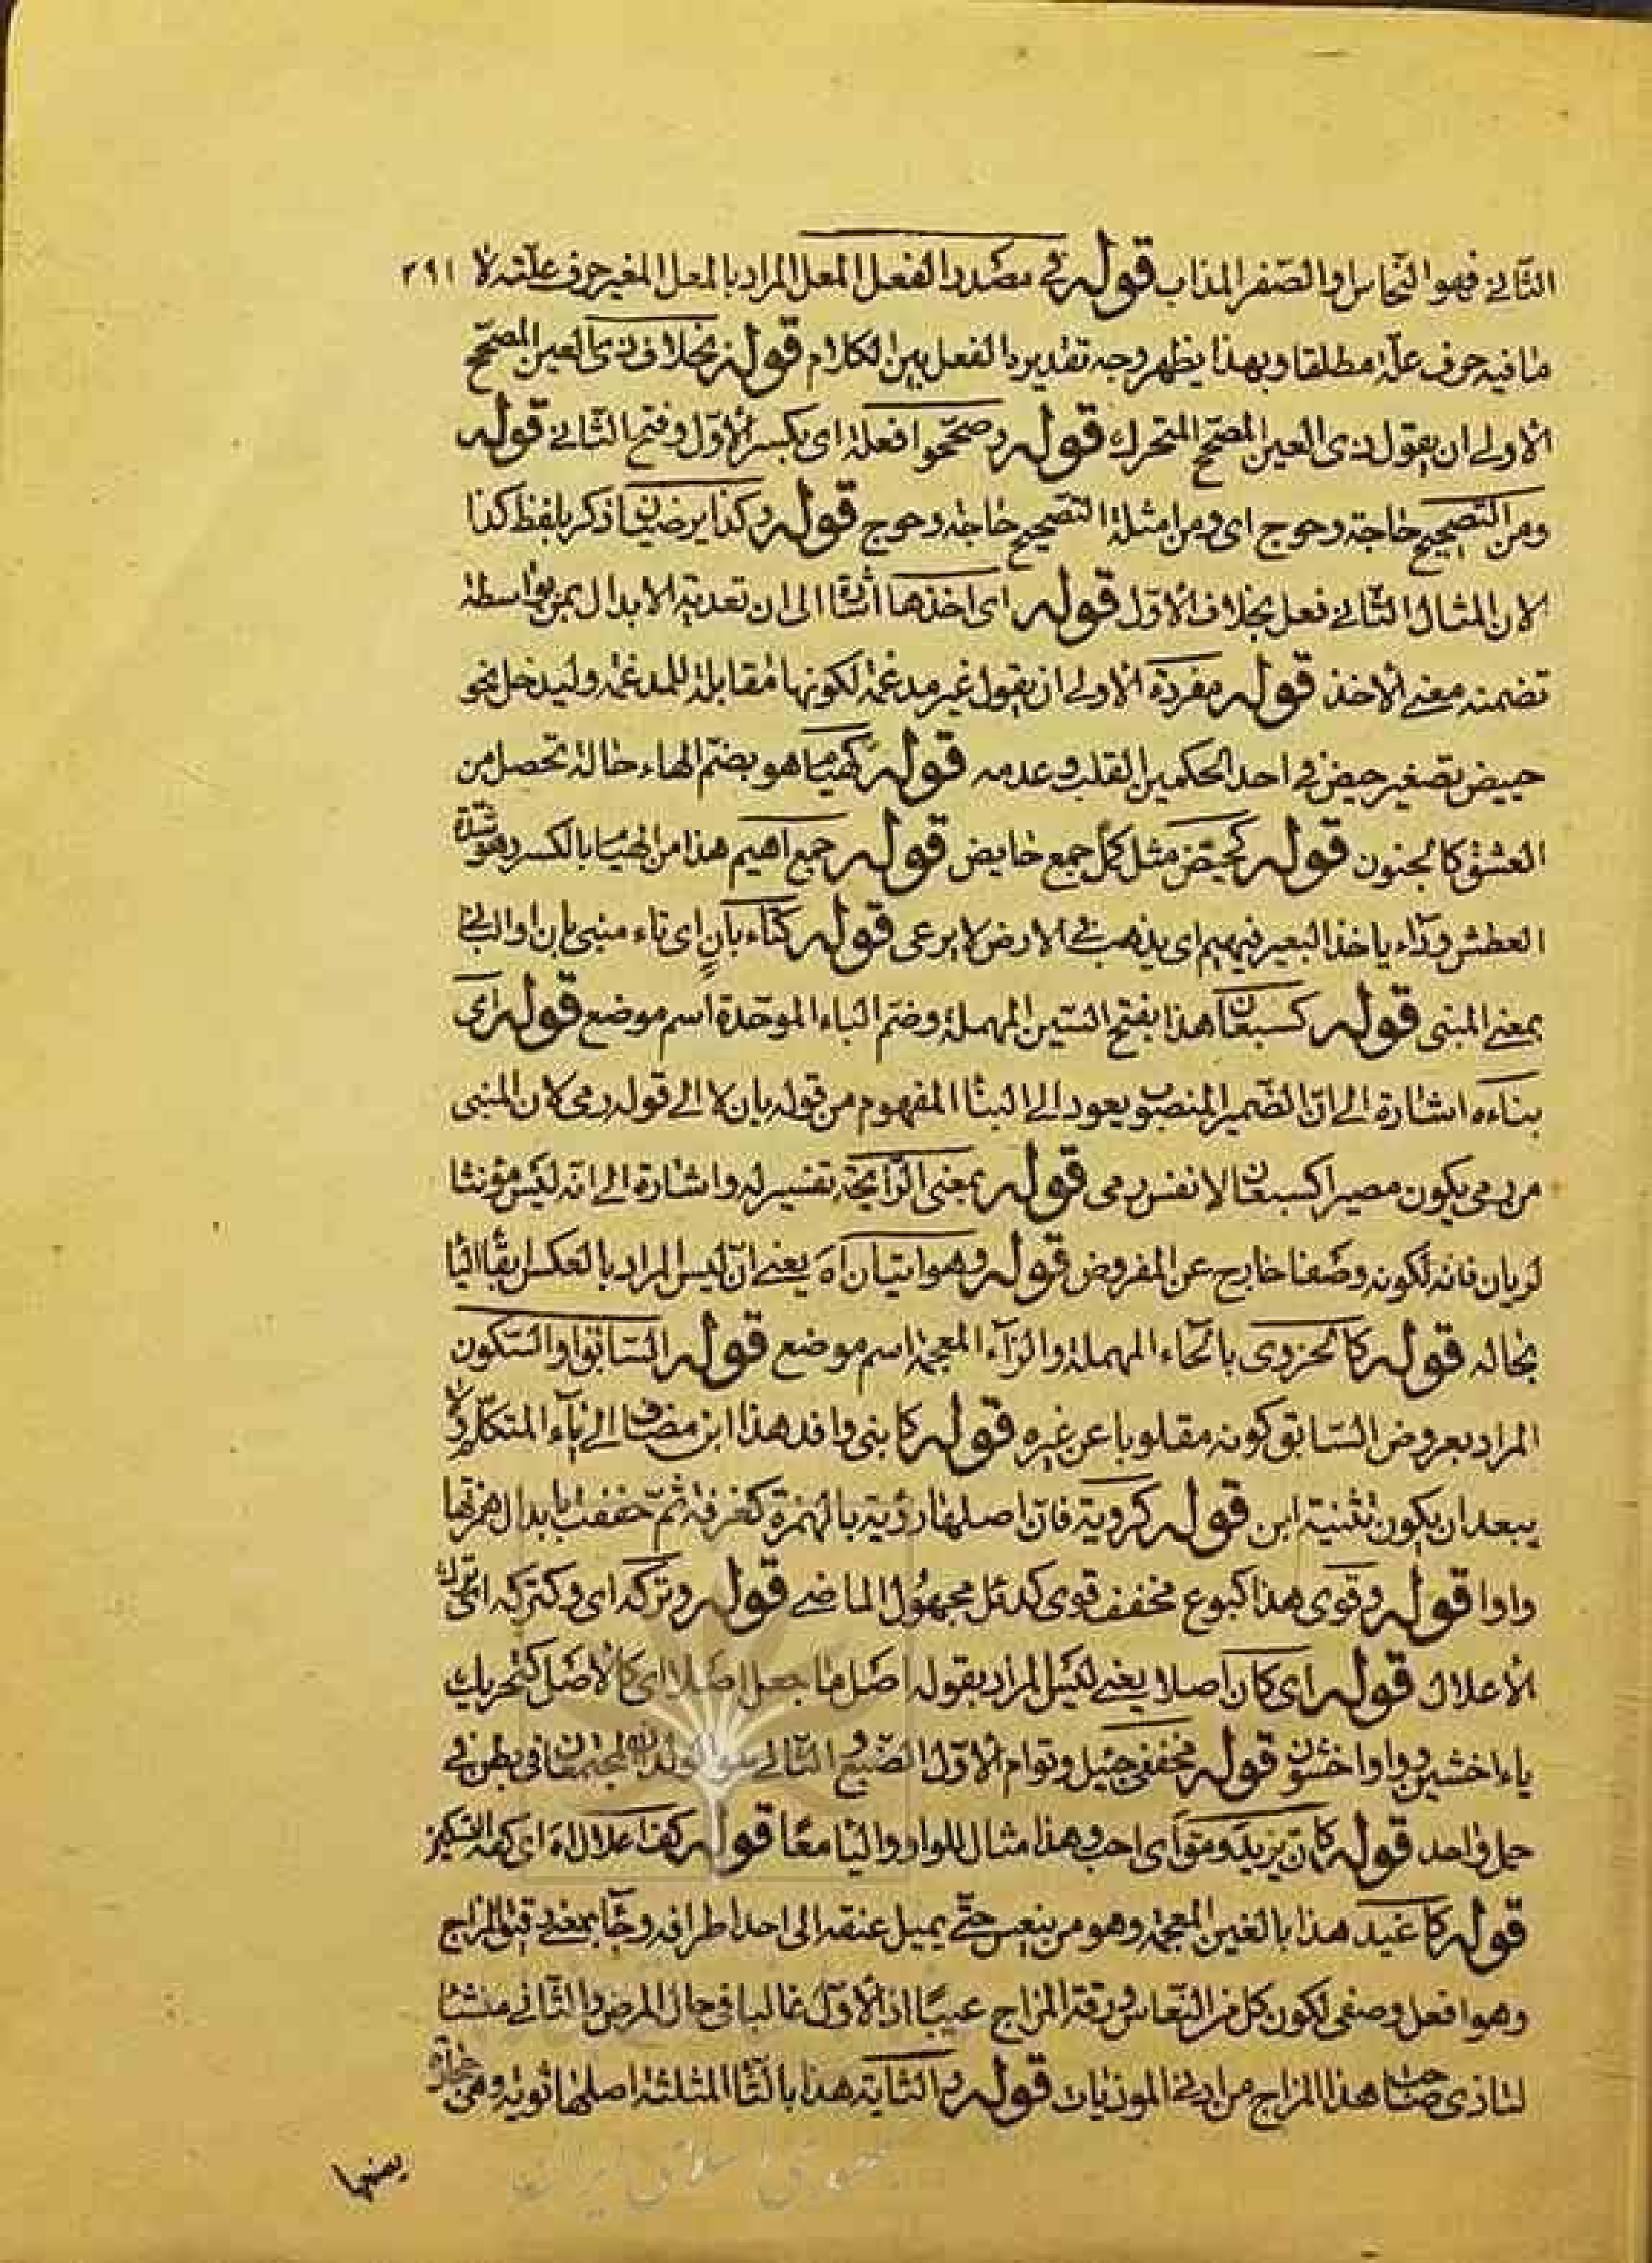 الثانے فهو النحاس او الصفر المذاب قوله في مصدر الفعل المعل المراد بالمعل المغير حرف علته لا ٢٩١
ما فيه حرف علة مطلقا وبهذا يظهر وجه تقديره الفعل بين الكلام قوله بخلاف ذى العين المصحح
الاولى ان يقول ذى العين المصحح المتحرك قوله وصححوا فعلة اى بكسر الاول وفتح الثانى قوله
ومن التصحيح حاجة وحوج اى ومن امثلة التصحيح حاجة وحوج قوله وكذا يرضيان ذكر بلفظ كذا
لان المثال الثانى فعل بخلاف الاول قوله اى اخذها اشارة الى ان تعدية الابدال بمن بواسطة
تضمنه معنى الاخذ قوله مفردة الاولى ان يقول غير مدغمة لكونها مقابلة للمدغمة وليدخل نحو
حييض تصغير حيض فى احد الحكمين القلب وعدمه قوله كهيام هو بضم الهاء حالة تحصل من
العشق كالجنون قوله كحيض مثل كمل جمع حايض قوله جمع اهيم هذا من الهيام بالكسر وهو شدة
العطش وداء ياخذ البعير فيهيم اى يذهب فى الارض لا يرعى قوله كتاء بان اى تاء مبنى بان او البانى
بمعنى المبنى قوله كسبعان هذا بفتح السين المهملة وضم الباء الموحدة اسم موضع قوله اى
بناءه اشارة الى ان الضمير المنصوب يعود الى البناء المفهوم من قوله بان لا الى قوله رمى لان المبنى
من رمى يكون مصيرا كسبعان لا نفس رمى قوله بمعنى الرايحة تفسير له واشارة الى انه ليس مؤنثا
لريان فانه لكونه وصفا خارج عن المفروض قوله وهو ابتيان اه يعنى ان ليس المراد بالعكس بقاء اليا
بحاله قوله كالحزوى بالحاء المهملة والزاء المعجمة اسم موضع قوله السابق او السكون
المراد بعروض السابق كونه مقلوبا عن غيره قوله كابنى وافد هذا ابن مضاف الى ياء المتكلم ولا
يبعد ان يكون تثنية ابن قوله كروية فان اصلها رؤية بالهمزة كغرفة ثم خففت بابدال همزتها
واوا قوله وقوى هذا كبوع مخفف قوى كدئل مجهول الماضى قوله وتركه اى وكتركه اى ترك
الاعلال قوله اى كان اصلا يعنى ليس المراد بقوله اصل ما جعل اصلا اى كالاصل كتحريك
ياء اخشين وواو اخشون قوله مخففى جيئل وتوام الاول الضبع الثانى هو الولدان المجتمعان فى بطن فى
حمل واحد قوله كان يزيد ومقو اى احب وهذا مثال للواو والياء معا قوله كف اعلال اه اى كفه التسكين
قوله كاغيد هذا بالغين المعجمة وهو من ينعس حتى يميل عنقه الى احد اطرافه وجاء بمعنى رقيق المزاج
وهو افعل وصفى لكون كل من النعاس ورقة المزاج عيبا اذ الاول غالبا فى حال المرض والثانى منشأ
لتاذى صاحب هذا المزاج من ادنى الموذيات قوله والثاية هذا بالثاء المثلثة اصلها ثوية وهى حجارة